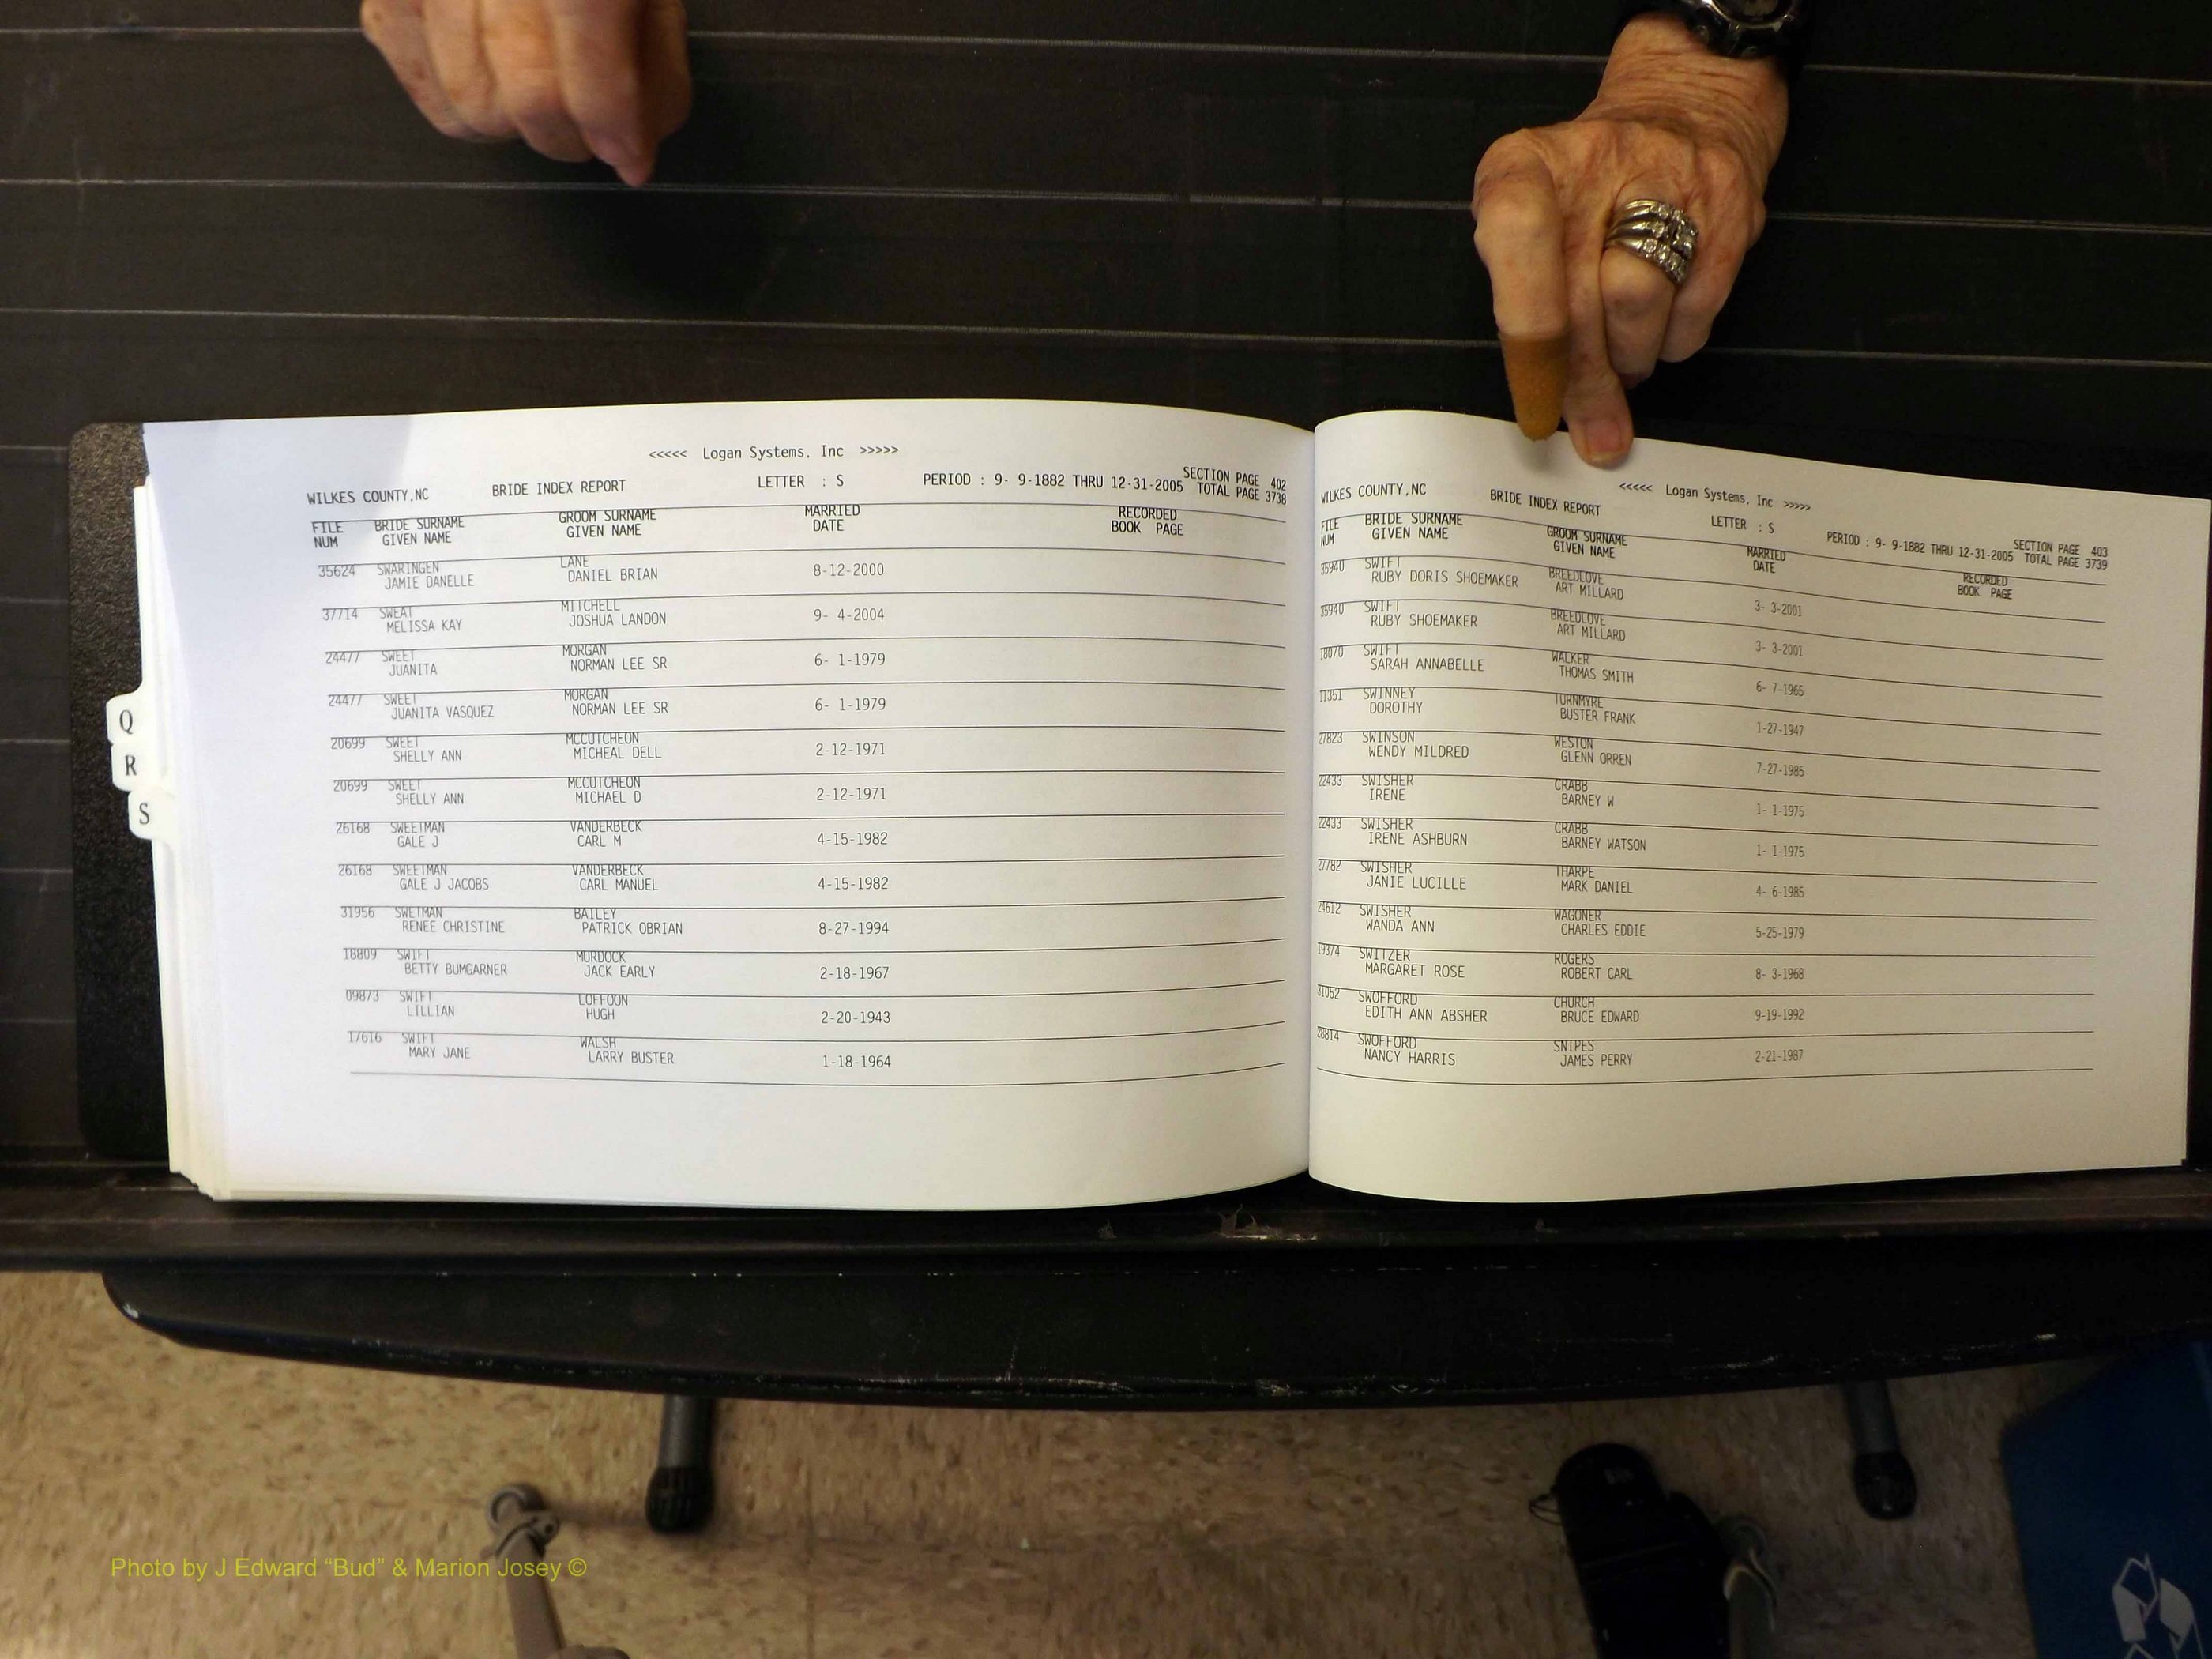 <<<<< Logan Systems, Inc >>>>>
WILKES COUNTY,NC BRIDE INDEX REPORT LETTER : S PERIOD : 9- 9-1882 THRU 12-31-2005 SECTION PAGE 402
TOTAL PAGE 3738
FILE BRIDE SURNAME GROOM SURNAME MARRIED RECORDED
NUM GIVEN NAME GIVEN NAME DATE BOOK PAGE
35624 SWARINGEN LANE
JAMIE DANELLE DANIEL BRIAN 8-12-2000
37714 SWEAT MITCHELL
MELISSA KAY JOSHUA LANDON 9- 4-2004
24477 SWEET MORGAN
JUANITA NORMAN LEE SR 6- 1-1979
24477 SWEET MORGAN
JUANITA VASQUEZ NORMAN LEE SR 6- 1-1979
20699 SWEET MCCUTCHEON
SHELLY ANN MICHEAL DELL 2-12-1971
20699 SWEET MCCUTCHEON
SHELLY ANN MICHAEL D 2-12-1971
26168 SWEETMAN VANDERBECK
GALE J CARL M 4-15-1982
26168 SWEETMAN VANDERBECK
GALE J JACOBS CARL MANUEL 4-15-1982
31956 SWETMAN BAILEY
RENEE CHRISTINE PATRICK OBRIAN 8-27-1994
18809 SWIFT MURDOCK
BETTY BUMGARNER JACK EARLY 2-18-1967
09873 SWIFT LOFFOON
LILLIAN HUGH 2-20-1943
17616 SWIFT WALSH
MARY JANE LARRY BUSTER 1-18-1964
Q
R
S
<<<<< Logan Systems, Inc >>>>>
WILKES COUNTY,NC BRIDE INDEX REPORT LETTER : S PERIOD : 9- 9-1882 THRU 12-31-2005 SECTION PAGE 403
TOTAL PAGE 3739
FILE BRIDE SURNAME GROOM SURNAME MARRIED RECORDED
NUM GIVEN NAME GIVEN NAME DATE BOOK PAGE
35940 SWIFT BREEDLOVE
RUBY DORIS SHOEMAKER ART MILLARD 3- 3-2001
35940 SWIFT BREEDLOVE
RUBY SHOEMAKER ART MILLARD 3- 3-2001
18070 SWIFT WALKER
SARAH ANNABELLE THOMAS SMITH 6- 7-1965
11351 SWINNEY TURNMYRE
DOROTHY BUSTER FRANK 1-27-1947
27823 SWINSON WESTON
WENDY MILDRED GLENN ORREN 7-27-1985
22433 SWISHER CRABB
IRENE BARNEY W 1- 1-1975
22433 SWISHER CRABB
IRENE ASHBURN BARNEY WATSON 1- 1-1975
27782 SWISHER THARPE
JANIE LUCILLE MARK DANIEL 4- 6-1985
24612 SWISHER WAGONER
WANDA ANN CHARLES EDDIE 5-25-1979
19374 SWITZER ROGERS
MARGARET ROSE ROBERT CARL 8- 3-1968
31052 SWOFFORD CHURCH
EDITH ANN ABSHER BRUCE EDWARD 9-19-1992
28814 SWOFFORD SNIPES
NANCY HARRIS JAMES PERRY 2-21-1987
Photo by J Edward “Bud” & Marion Josey ©